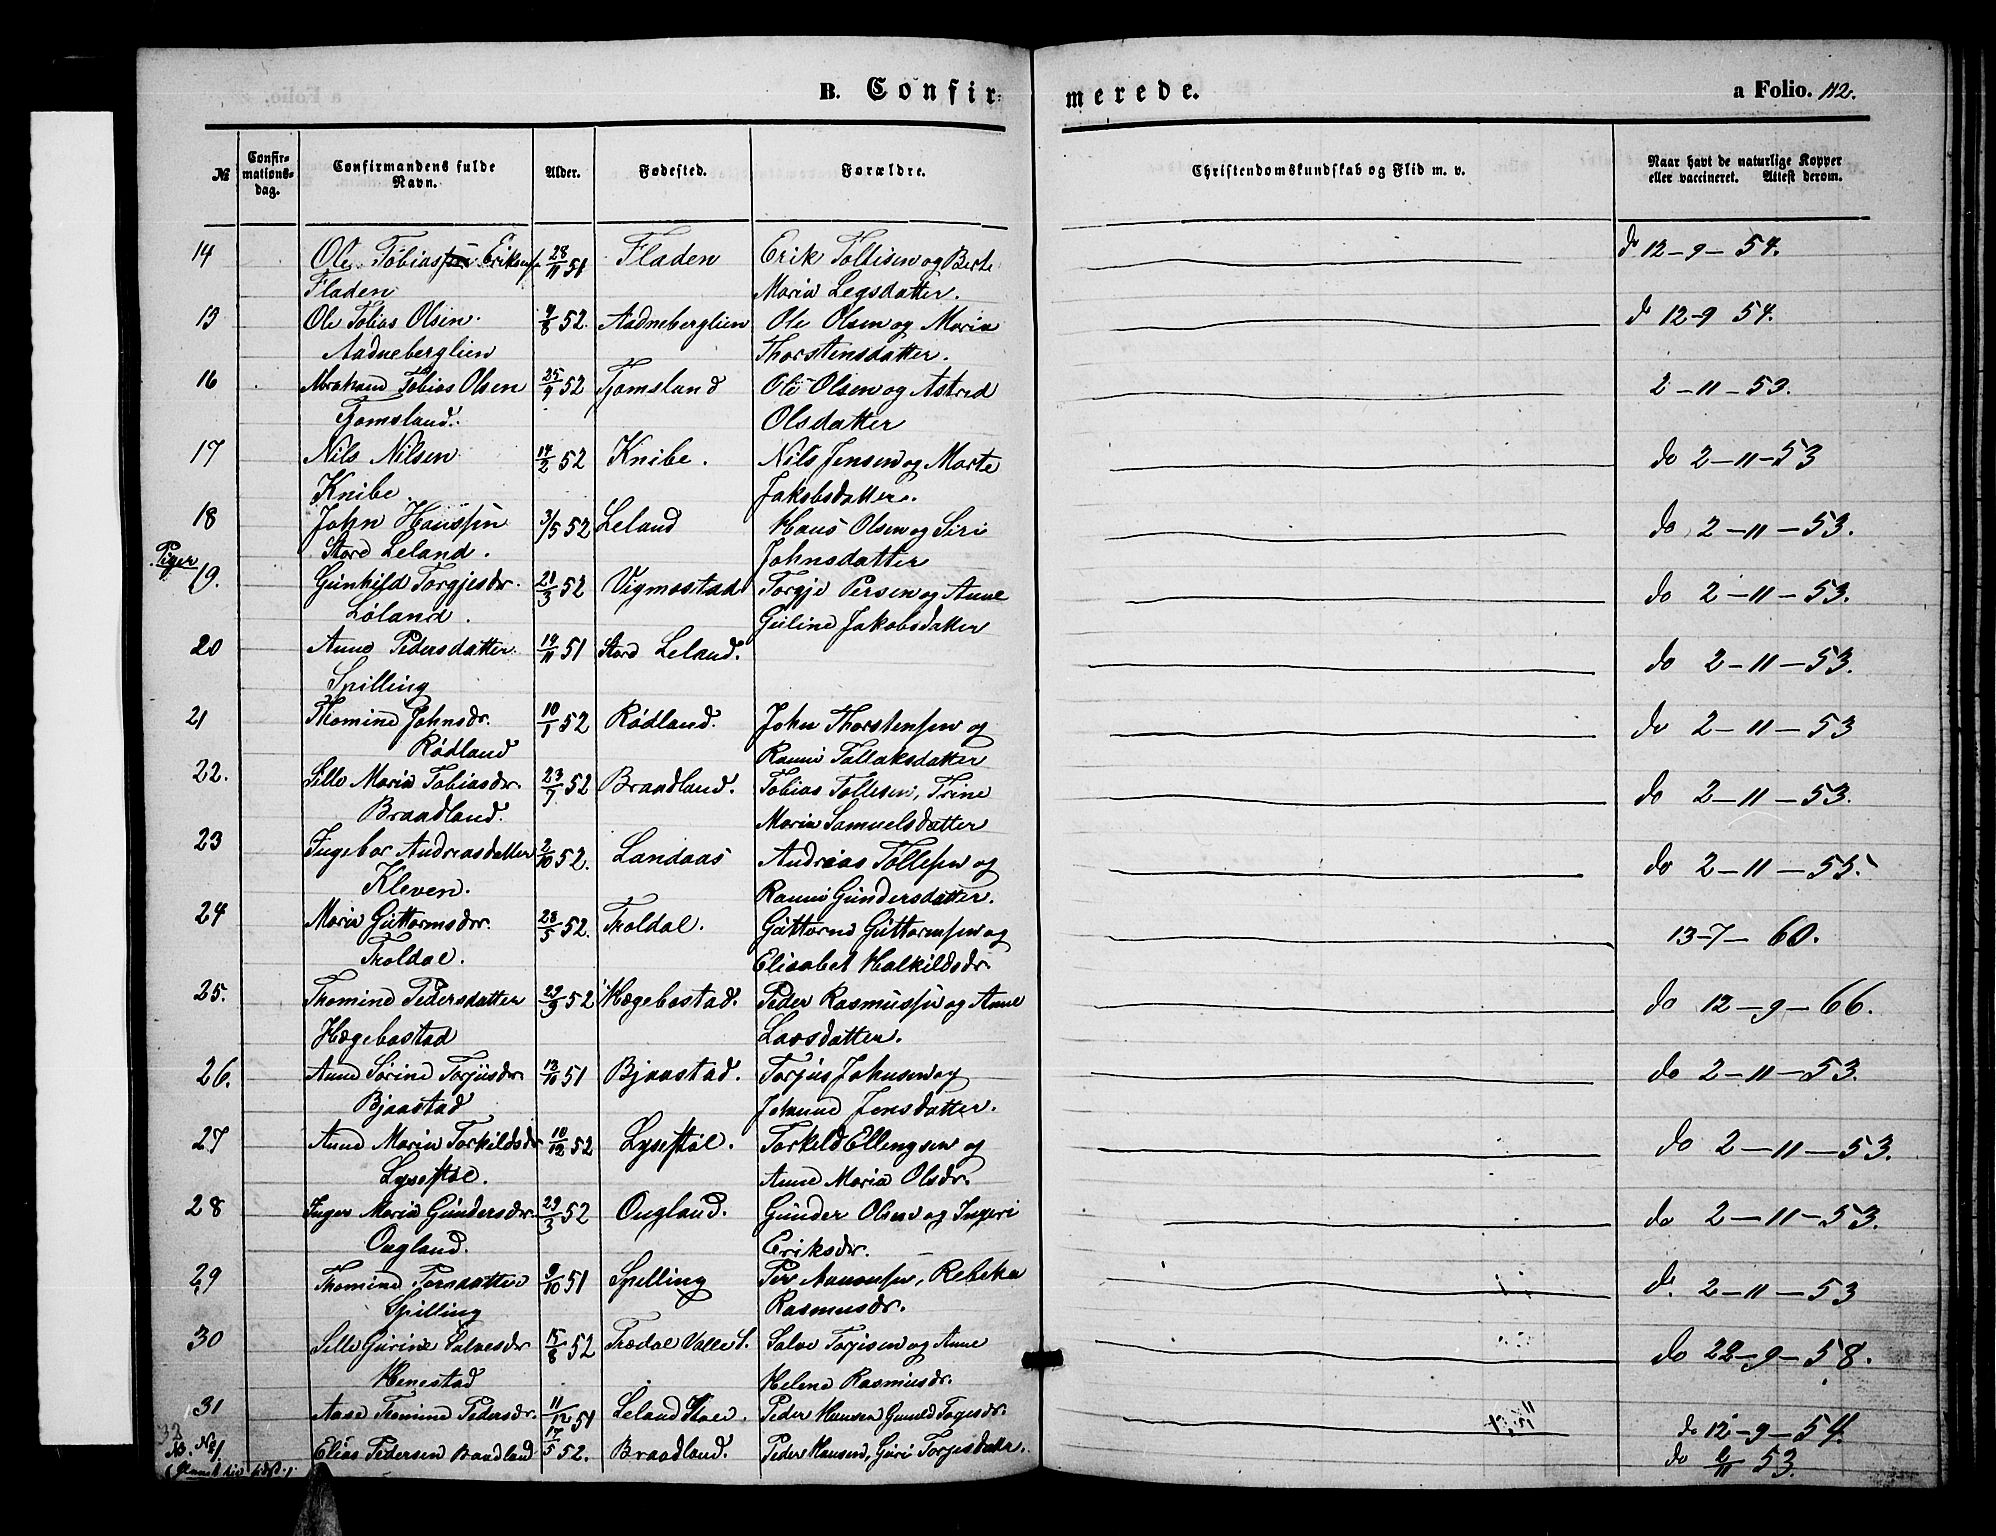 B. Confirmerede. a Folio. 112.
№ Confirmationsdag. Confirmandens fulde Navn. Alder. Fødested. Forældre. Christendomskundskab og Flid m. v. Naar havt de naturlige Kopper eller vaccineret. Attest derom.
14 Ole Tobias Eriksen 28/11 51 Fladen Erik Tollisen og Berte do 12-9-54.
Fladen Maria Legsdatter.
15 Ole Tobias Olsen. 9/8 52. Aadneberglien Ole Olsen og Maria do 12-9 54.
Aadneberglien Thorstensdatter.
16 Abraham Tobias Olsen 25/9 52 Tjomsland Ole Olsen og Astrid 2-11-53.
Tjomsland. Olsdatter
17 Nils Nilsen 14/2 52 Knibe. Nils Jensen og Marte do 2-11-53
Knibe. Jakobsdatter.
18 John Hanssen 3/5 52 Leland Hans Olsen og Siri do 2-11-53.
Store Leland. Johnsdatter
Piger
19. Gunhild Torgjesdr. 21/3 52 Vigmostad Torgje Persen og Anne do 2-11-53.
Løland. Guline Jakobsdatter
20 Anne Pedersdatter 19/11 51 Stord Leland. do 2-11-53.
Spilling
21 Thomine Johnsdr. 10/1 52 Rødland. John Thorstensen og do 2-11-53
Rødland Ranni Tallaksdatter
22. Sille Maria Tobiasdr. 23/7 52 Braadland. Tobias Tollesen, Trine do 2-11-53.
Braadland. Maria Samuelsdatter
23 Ingebor Andreasdatter 2/10 52. Landaas Andreas Tollesen og do 2-11-55.
Kleven. Ranni Gundersdatter.
24 Maria Guttormsdr. 28/5 52. Troldal. Guttorm Guttormsen og 13-7-60.
Troldal. Elisabet Halkildsdr.
25. Thomine Pedersdatter 29/9 52 Hægebostad. Peder Rasmussen og Anne do 12-9-66.
Hægebostad Larsdatter.
26. Anne Sørine Torjusdr. 13/10 51 Bjaastad. Torjus Johnsen og do 2-11-53.
Bjaastad Johanne Jensdatter.
27 Anne Maria Torkildsdr 10/12 52 Lysestøl. Torkild Ellengsen og do 2-11-53.
Lysestøl. Anne Maria Olsdr.
28 Inger Maria Gundersdr. 29/3 52 Ougland. Gunder Olsen og Ingeri do 2-11-53.
Ougland. Eriksdr.
29 Thomine Persdatter 9/10 51 Spilling Per Aanonsen, Rebeka do. 2-11-53
Spilling Rasmusdr.
30 Sille Gurine Salvesdr 15/8 52 Trædal Valle S. Salve Torjisen og Anne do 22-9-58.
Henestad Helene Rasmusdr.
31 Aase Tomine Pedersdr. 11/12 51 Leland Peder Hansen Gunild Tagesdr. do 12-9-54.
32
No 1. Elias Pedersen Baadland 17/5 52. Braadland. Peder Hansen, Guri Torjesdatr. do 6/11 53.